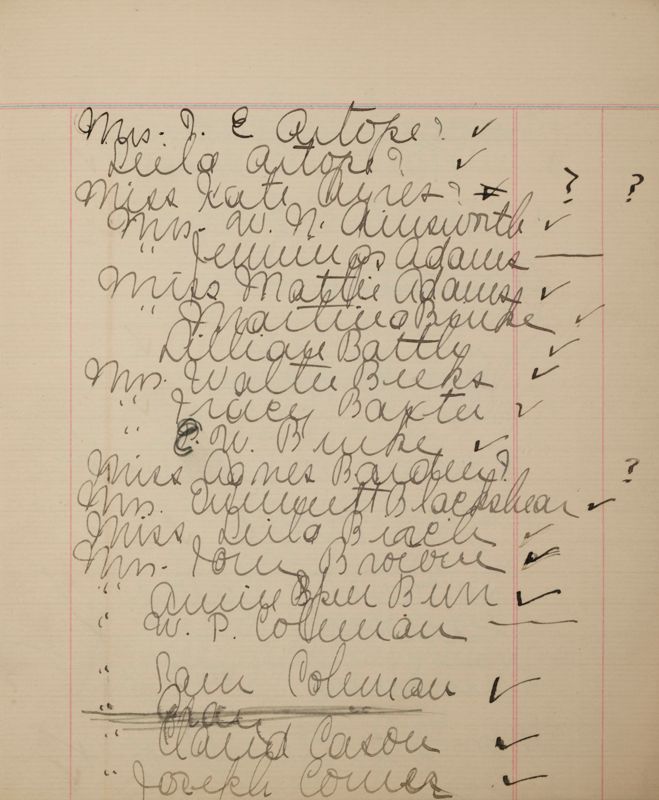 Mrs. J. E Artope? ✓
Leila Artope? ✓
Miss Kate Ayres? ? ?
Mrs. W. N. Ainsworth ✓
" Jennings Adams —
Miss Mattie Adams ✓
" Martina Burke ✓
Lillian Battly ✓
Mrs. Walter Beeks ✓
" Tracy Baxter ✓
E. W. Burke ✓
Miss Agnes Barden? ?
Mrs. Emmett Blackshear ✓
Miss Leila Birch ✓
Mrs. Tom Brown ✓
" Annie Burr ✓
" W. P. Coleman —
" Sam Coleman ✓
"
" Claud Cason ✓
" Joseph Comer ✓